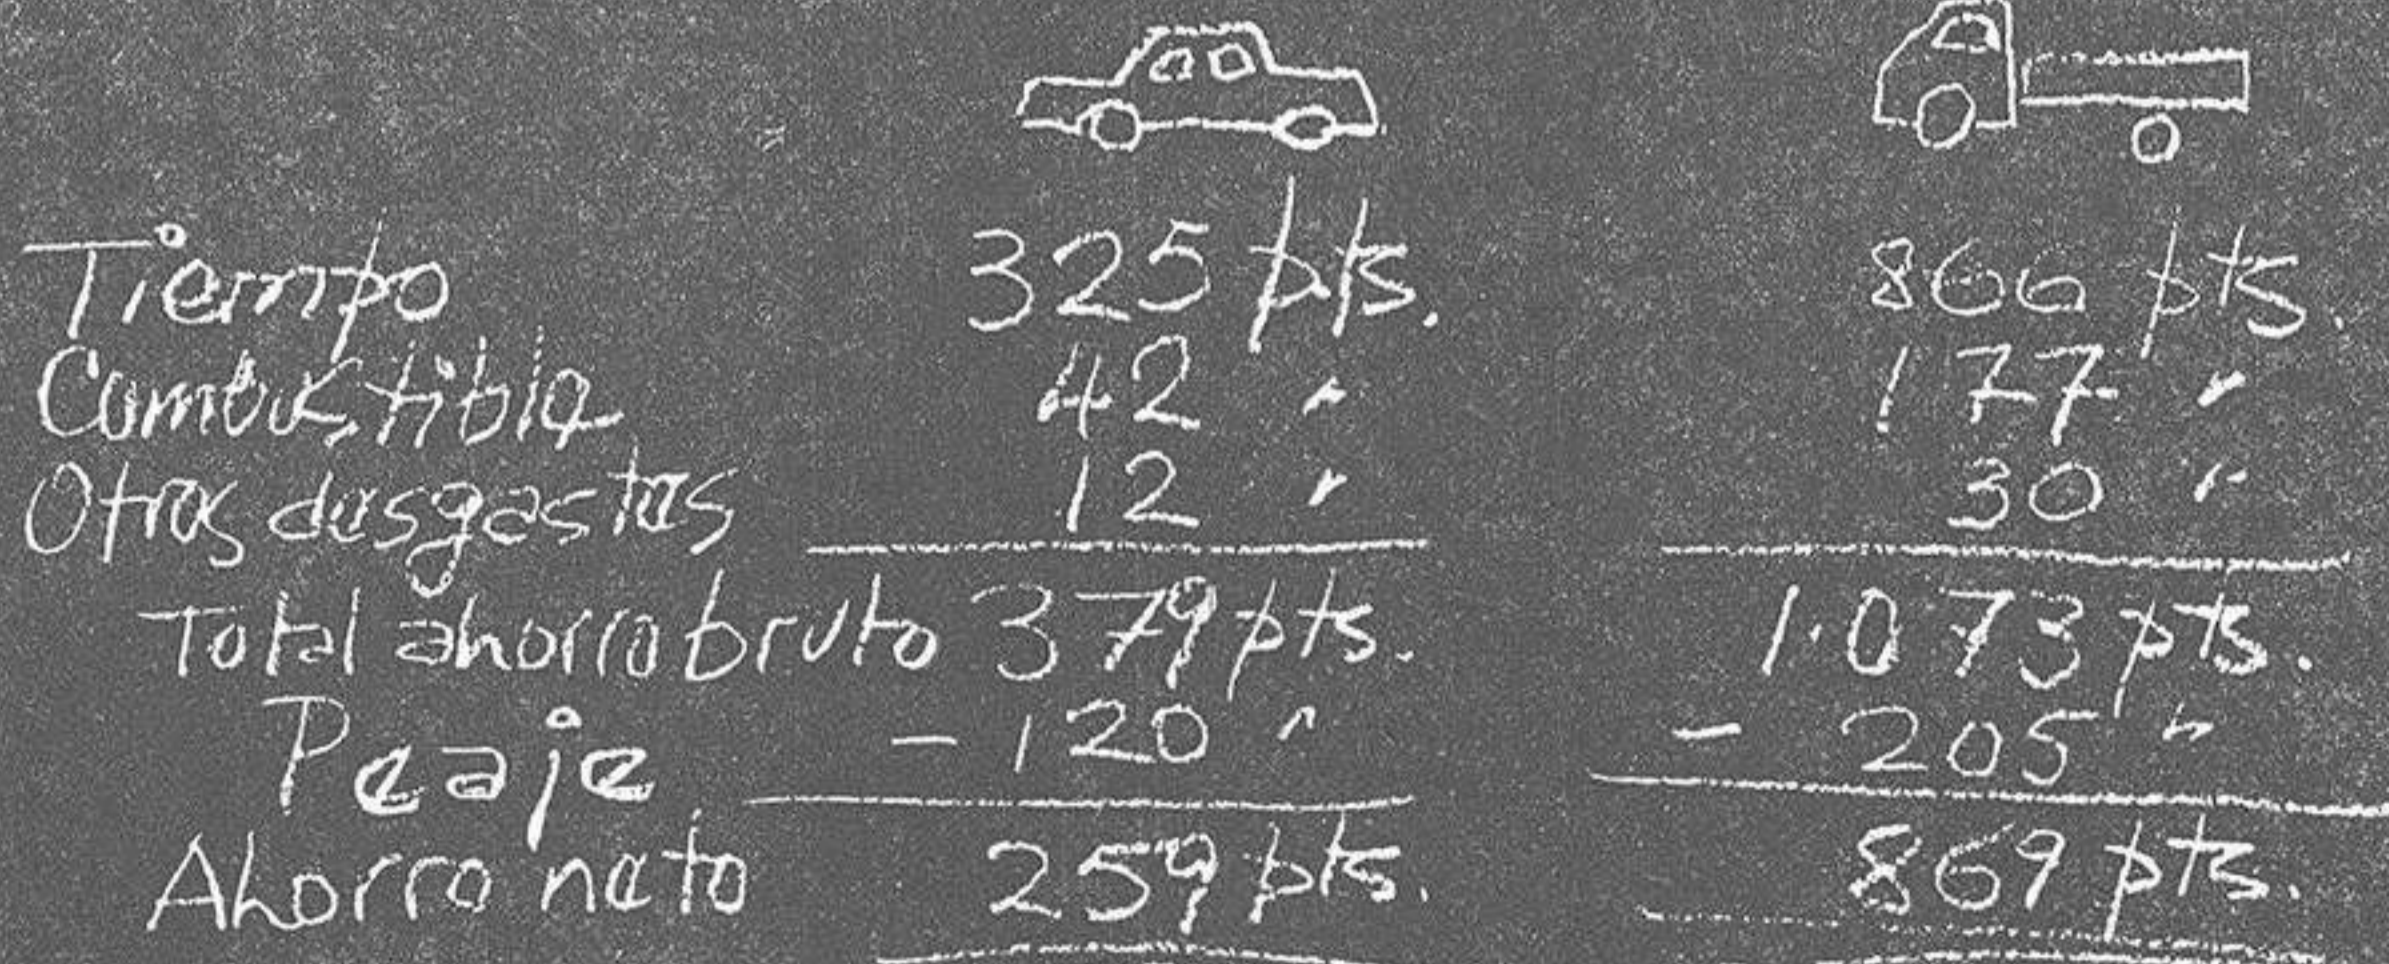 Tiempo 325 pts. 866 pts.
Combustible 42 " 177 "
Otros desgastes 12 " 30 "
Total ahorro bruto 379 pts. 1.073 pts.
Peaje - 120 " - 205 "
Ahorro neto 259 pts. 869 pts.